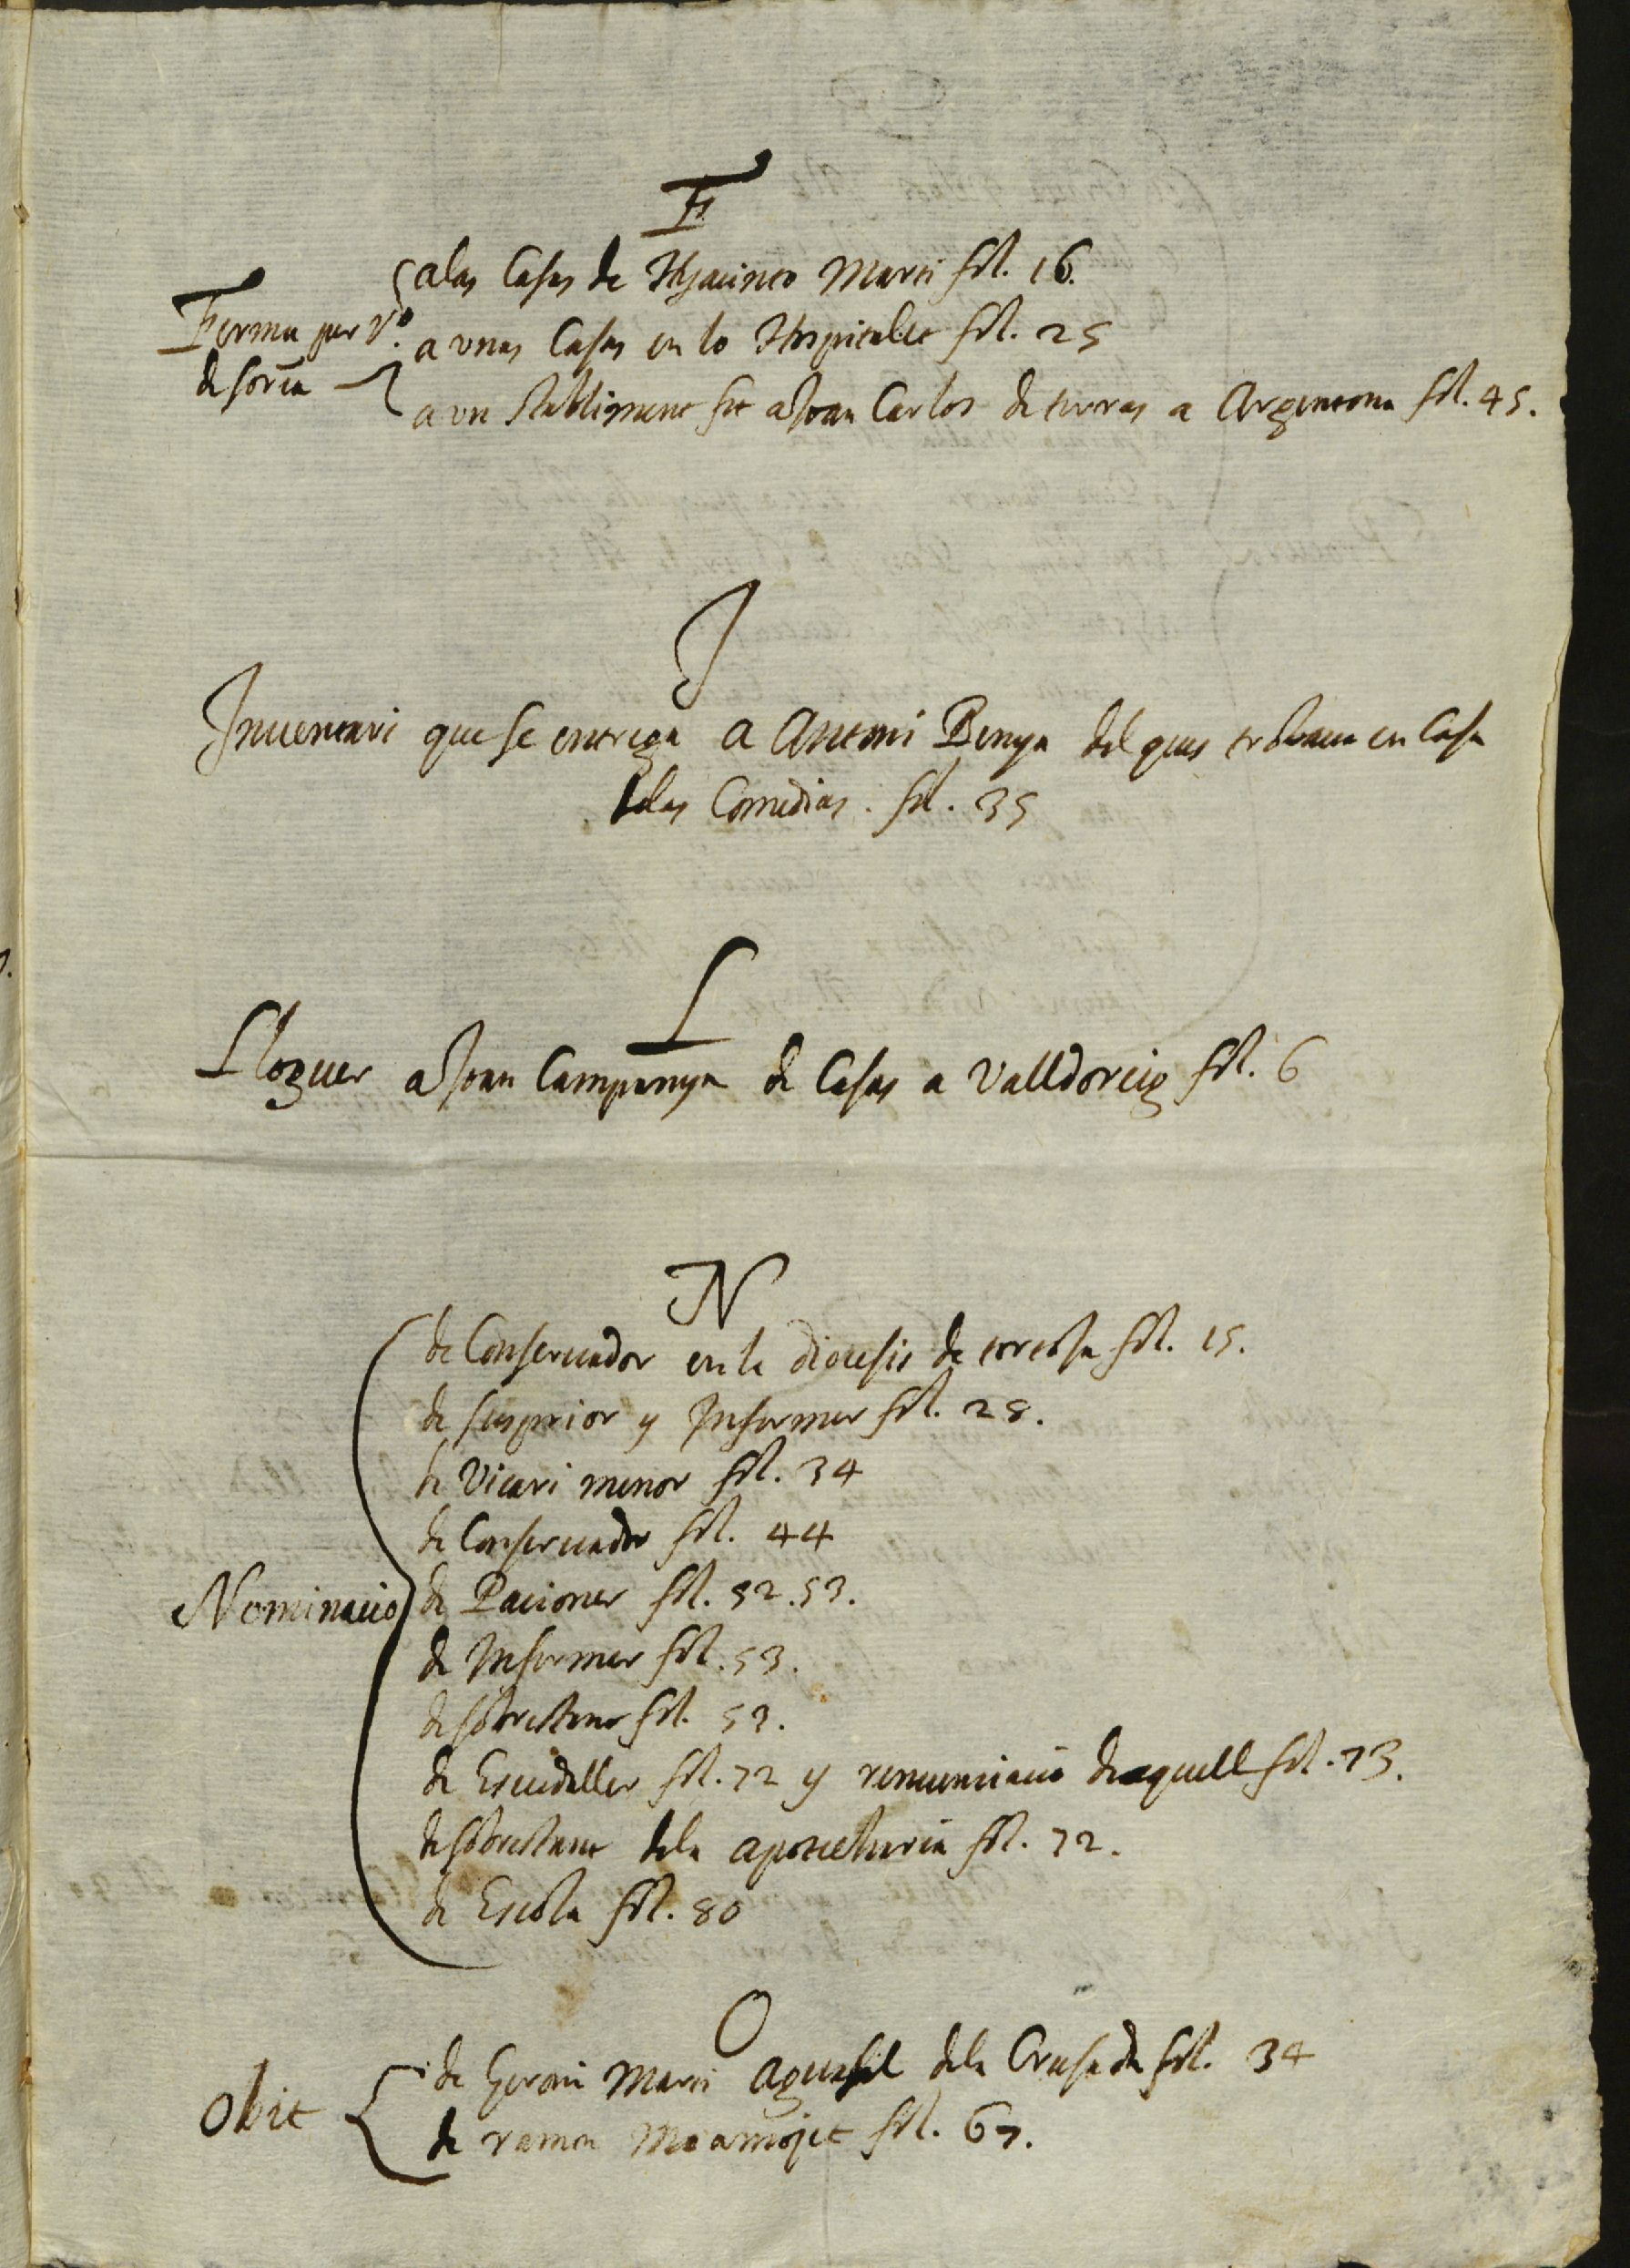 F
Ferma per Ro.
de soria
alas Casas de Hyacinto Marti fol. 16.
a unas Casas en lo Hospitalet fol. 25
a un stabliment fet a Joan Carlos de terras a Argentona fol. 45.
J
Inventari que se entrega a Antoni Benya del ques trobava en Casa
de las Comedias. fol. 35
L
Lloguer a Joan Campanya de Casas a Valldoreig fol. 6
N
Nominacio
de Conservador en la diocesis de tortosa fol. 15.
de susprior y Infermer fol. 28.
de Vicari menor fol. 34
de Conservador fol. 44
de Racioner fol. 52. 53.
de Infermer fol. 53.
de sobrestant fol. 53.
de Escudeller fol. 72 y renunciacio de aquell fol. 73.
de sobrestant de la apotecharia fol. 72.
de Escola fol. 80
O
Obit
de Geroni Marti Aguasil de la Crusada fol. 34
de ramon fol. 67.